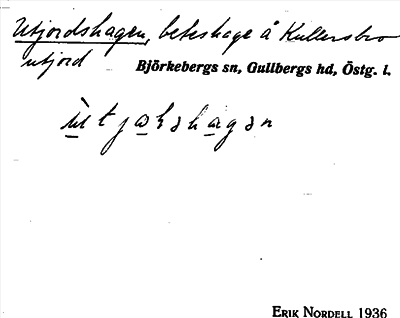 Utjordshagen, beteshage å Kullersbro
utjord
Björkebergs sn, Gullbergs hd, Östg. l.
ERIK NORDELL 1936